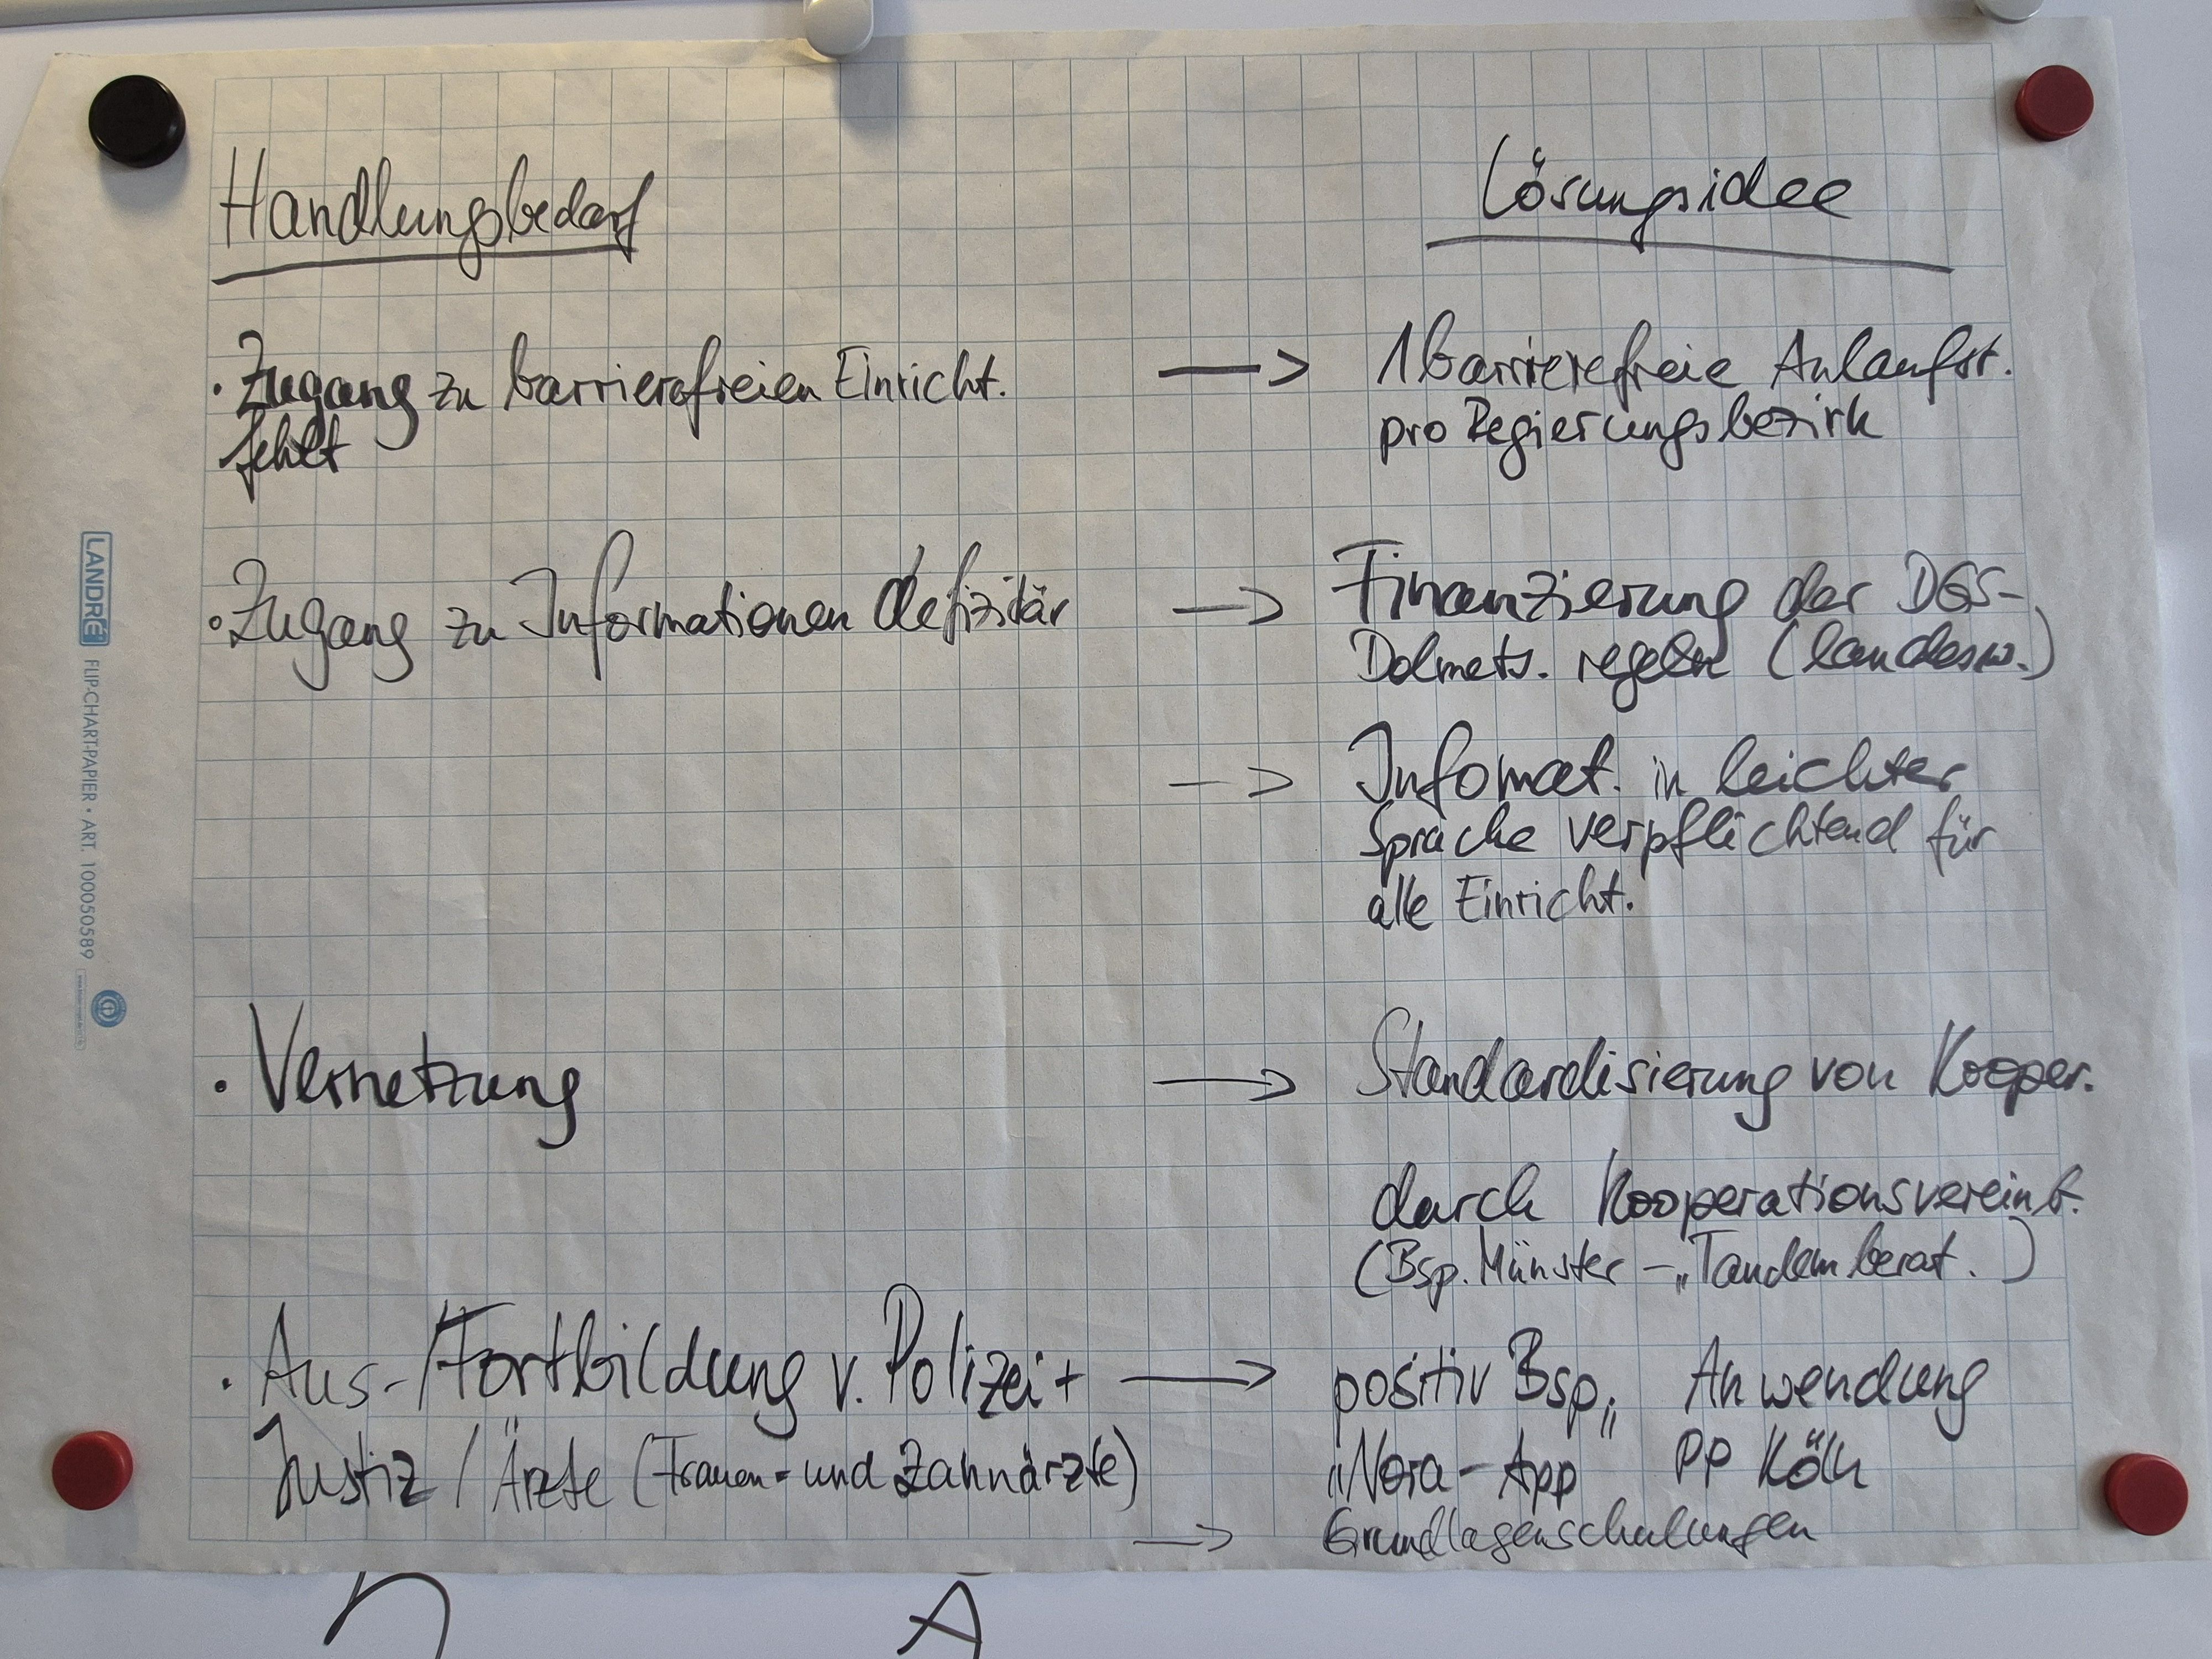 Handlungsbedarf
Lösungsidee
· Zugang zu barrierefreien Einricht.
fehlt
—> 1 barrierefreie Anlaufst.
pro Regierungsbezirk
· Zugang zu Informationen defizitär
—> Finanzierung der DGS-
Dolmets. regeln (landesw.)
—> Infomat. in leichter
Sprache verpflichtend für
alle Einricht.
· Vernetzung
—> Standardisierung von Kooper.
durch Kooperationsvereinb.
(Bsp. Münster - „Tandemberat. )
· Aus-/Fortbildung v. Polizei +
Justiz / Ärzte (Frauen- und Zahnärzte)
—> positiv Bsp„ Anwendung
„Nora-App PP Köln
—> Grundlagenschulungen
LANDRÉ
FLIP-CHART-PAPIER · ART. 100050589
A